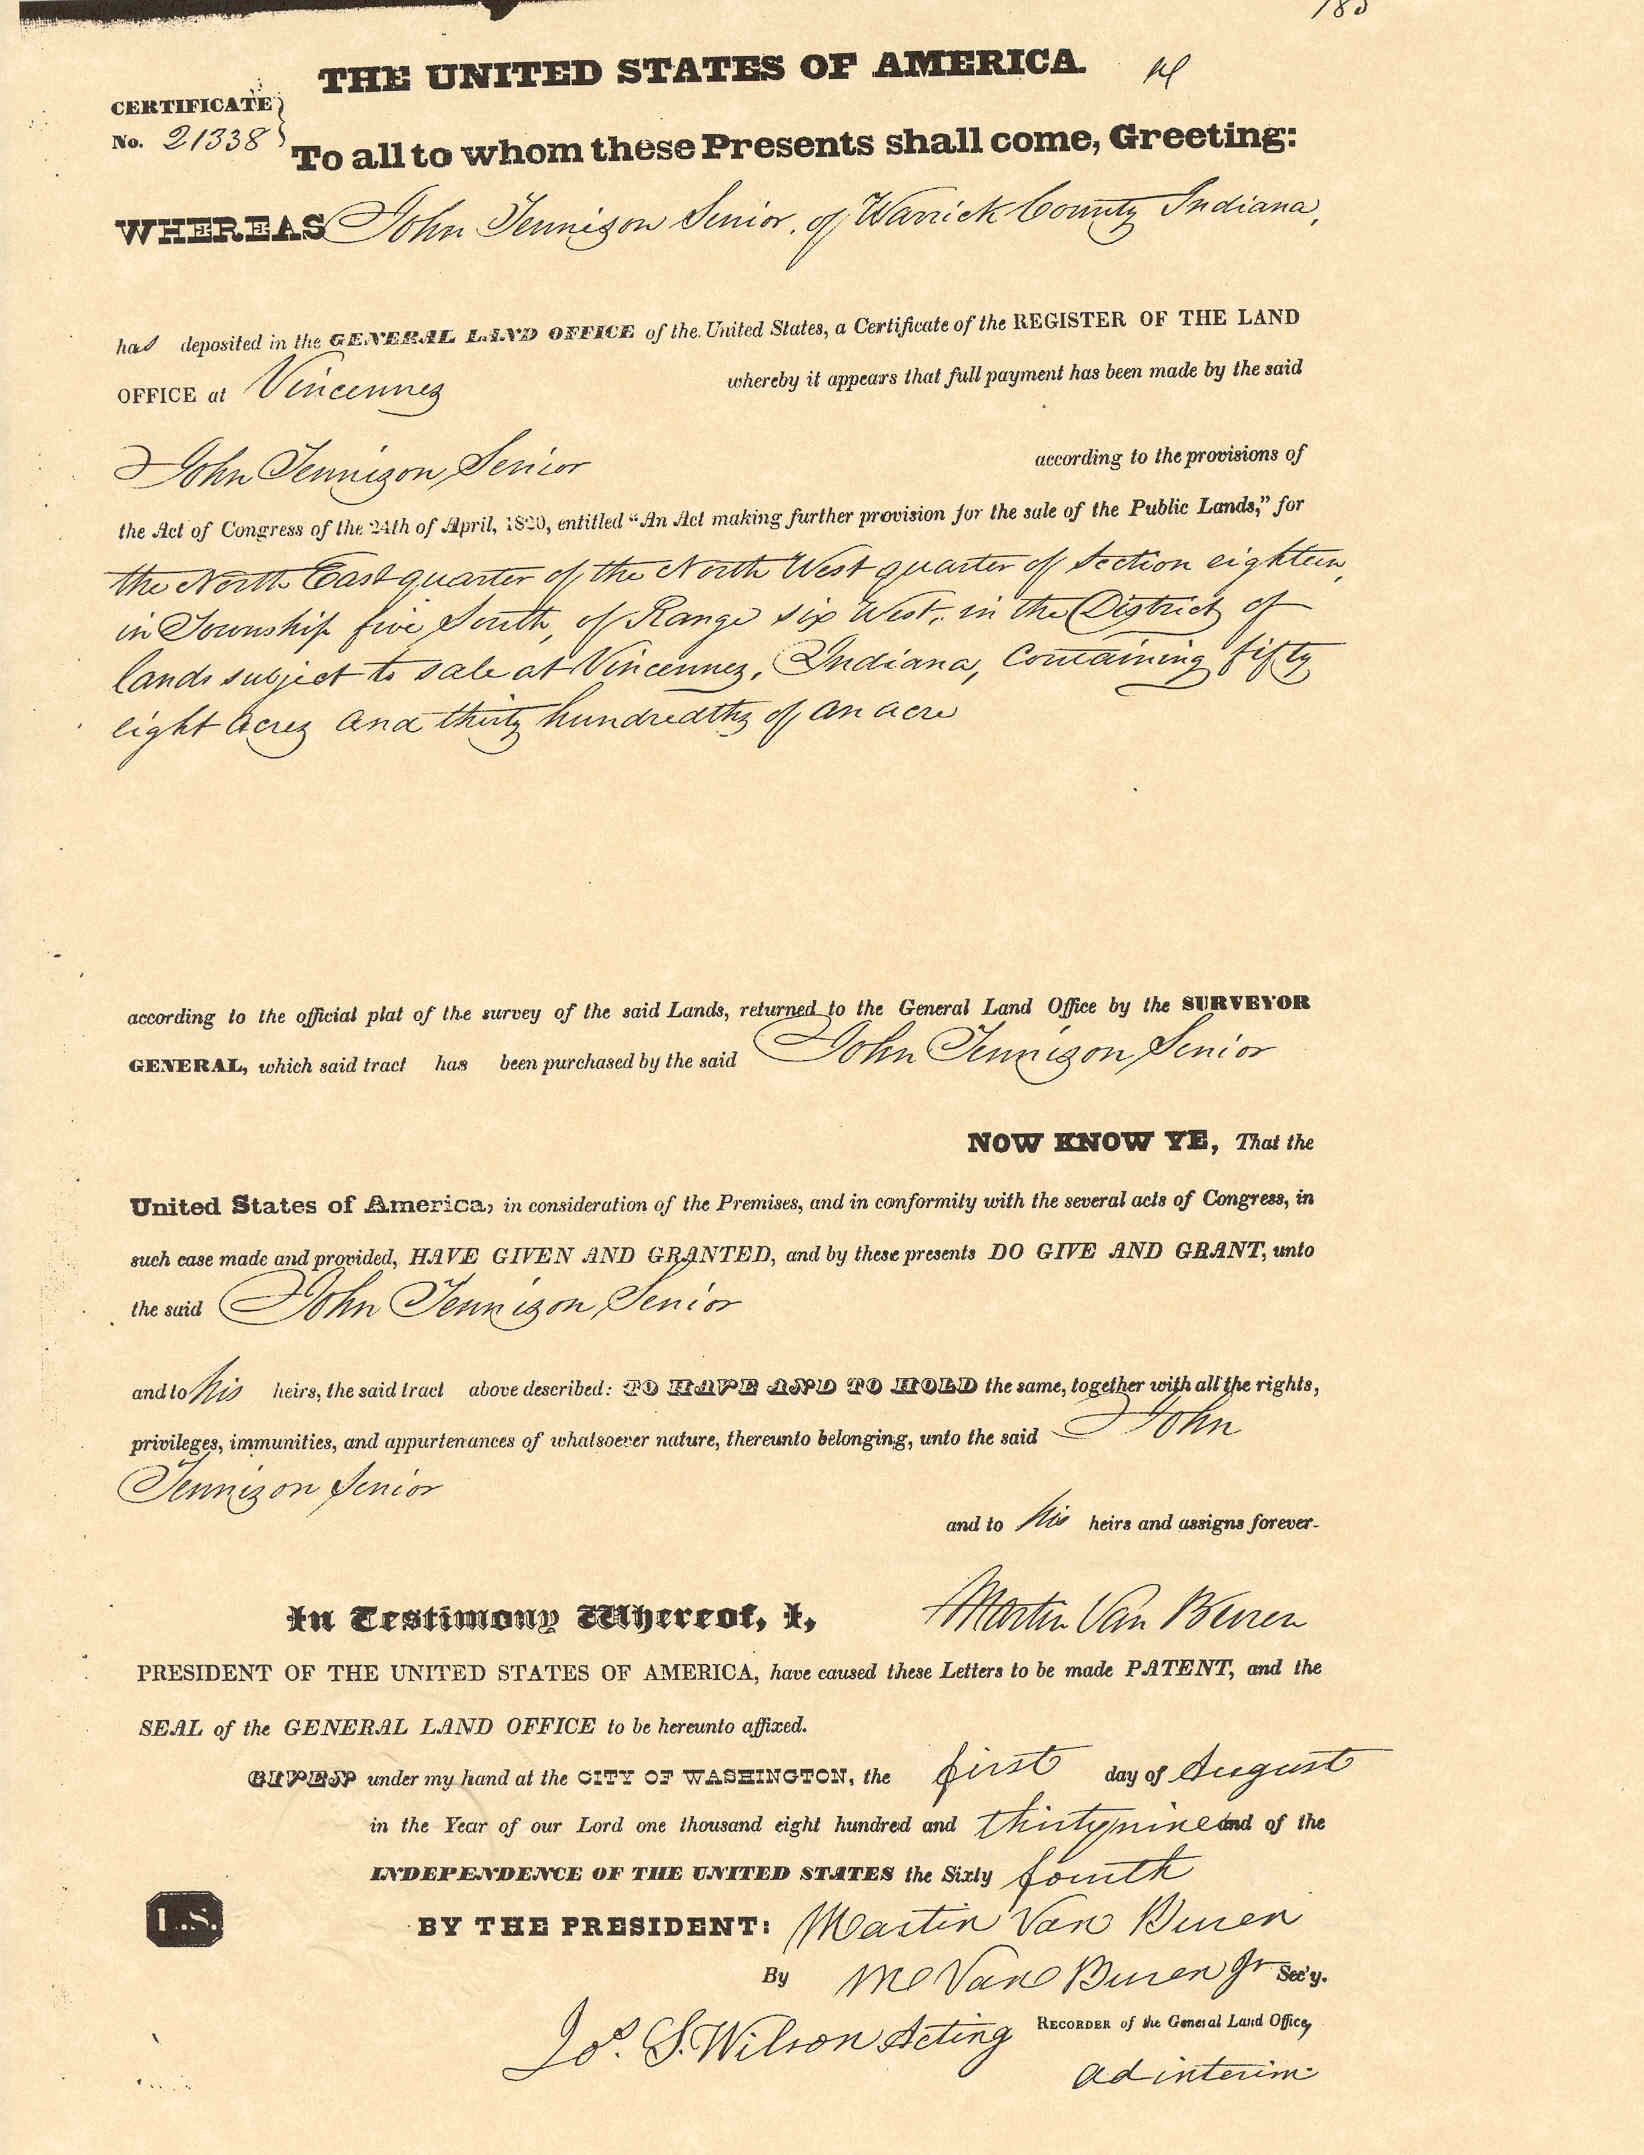 THE UNITED STATES OF AMERICA.
CERTIFICATE
No. 21338
To all to whom these Presents shall come, Greeting:
WHEREAS John Tennison Senior, of Warrick County Indiana,
has deposited in the GENERAL LAND OFFICE of the United States, a Certificate of the REGISTER OF THE LAND
OFFICE at Vincennes whereby it appears that full payment has been made by the said
John Tennison Senior according to the provisions of
the Act of Congress of the 24th of April, 1820, entitled "An Act making further provision for the sale of the Public Lands," for
the North East quarter of the North West quarter of Section eighteen,
in Township five South, of Range six West, in the District of
lands subject to sale at Vincennes, Indiana, Containing fifty
eight acres and thirty hundredths of an acre
according to the official plat of the survey of the said Lands, returned to the General Land Office by the SURVEYOR
GENERAL, which said tract has been purchased by the said John Tennison Senior
NOW KNOW YE, That the
United States of America, in consideration of the Premises, and in conformity with the several acts of Congress, in
such case made and provided, HAVE GIVEN AND GRANTED, and by these presents DO GIVE AND GRANT, unto
the said John Tennison Senior
and to his heirs, the said tract above described: TO HAVE AND TO HOLD the same, together with all the rights,
privileges, immunities, and appurtenances of whatsoever nature, thereunto belonging, unto the said John
Tennison Senior
and to his heirs and assigns forever.
In Testimony Whereof, I, Martin Van Buren
PRESIDENT OF THE UNITED STATES OF AMERICA, have caused these Letters to be made PATENT, and the
SEAL of the GENERAL LAND OFFICE to be hereunto affixed.
GIVEN under my hand at the CITY OF WASHINGTON, the first day of August
in the Year of our Lord one thousand eight hundred and thirty nine and of the
INDEPENDENCE OF THE UNITED STATES the Sixty fourth
L.S.
BY THE PRESIDENT: Martin Van Buren
By M Van Buren Jr Sec'y.
Jos. S. Wilson Acting RECORDER of the General Land Office,
ad interim